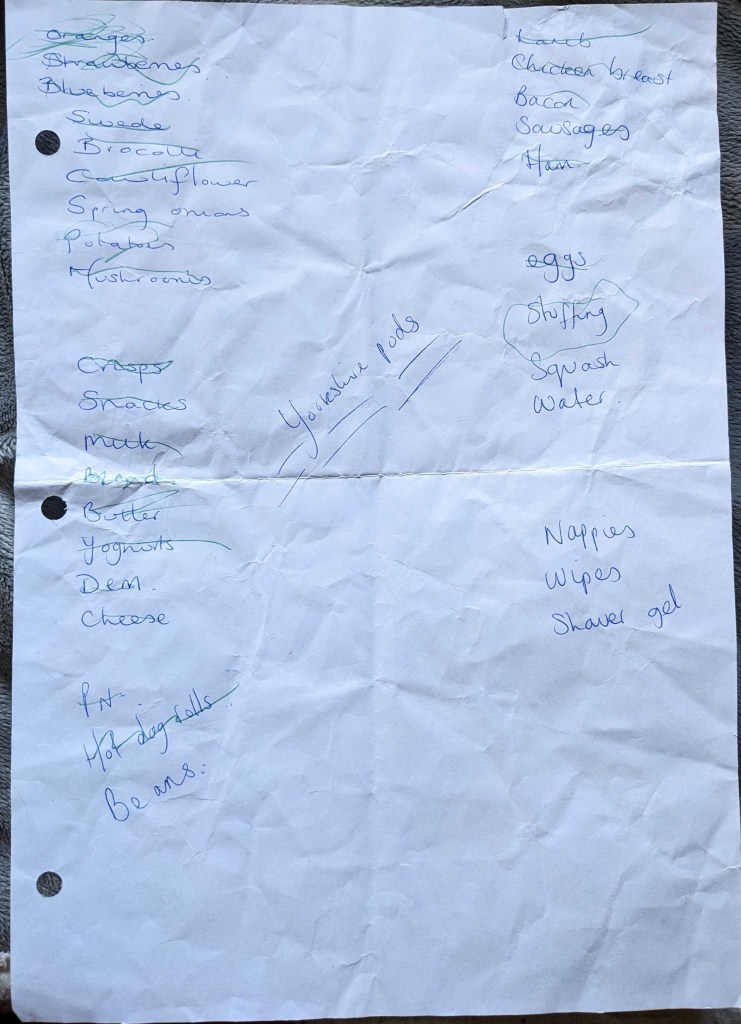 Oranges
Strawberries
Blueberries
Swede
Brocolli
Cauliflower
Spring onions
Potatoes
Mushrooms
Crisps
Snacks
Milk
Bread
Butter
Yoghurts
Dem.
Cheese
PN.
Hot dog rolls
Beans.
Yorkshire pods
Lamb
Chicken breast
Bacon
Sausages
Ham
eggs
Stuffing
Squash
Water.
Nappies
Wipes
Shaver gel